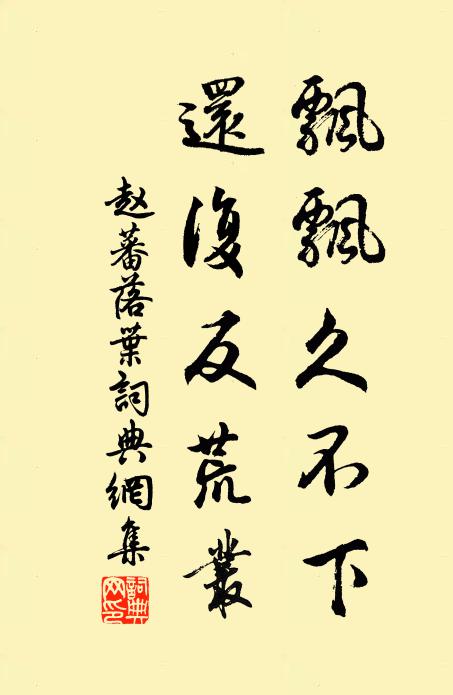 飄飄久不下
還復反荒叢
赵蕃落葉詞典網集